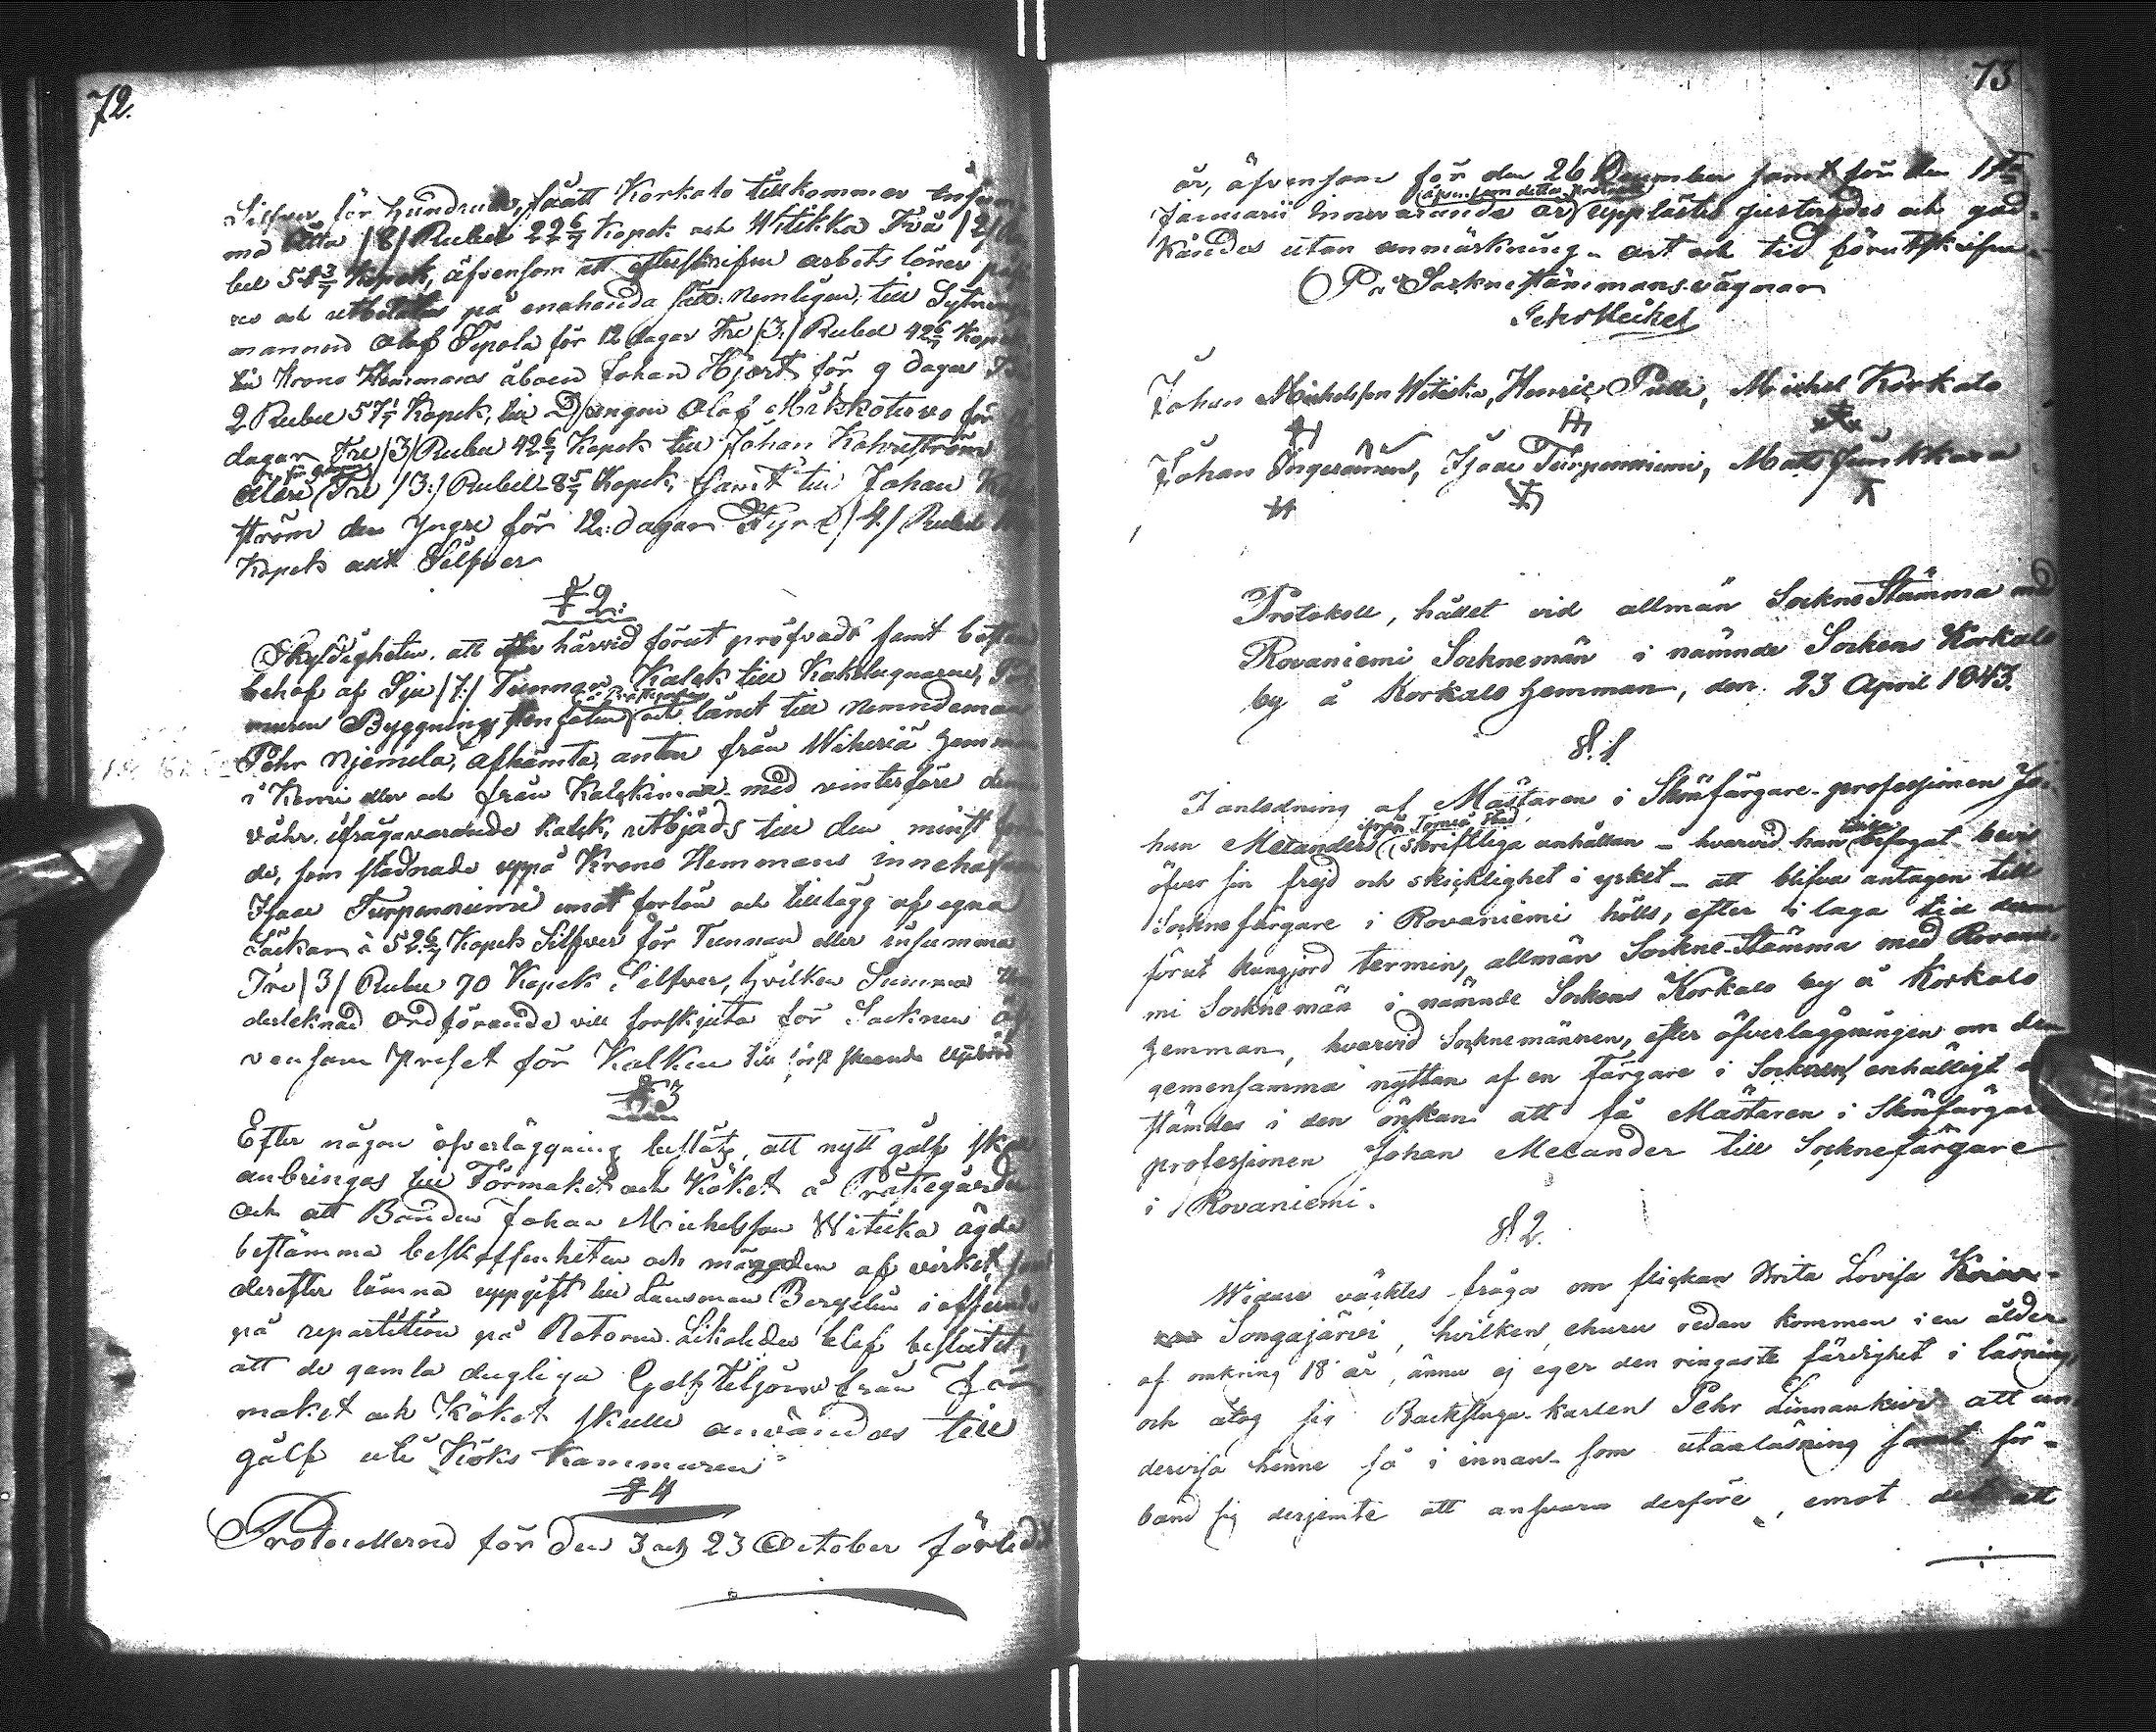 72.
Silfver för hundrade, så att Korkalo tillkommer
Åtta /8/ Rubel 22 6/7 Kopek och Witikka Två /2/
bel 54 3/7 Kopek, äfvensom att efterskrifne arbets löner
och utbetalas på enahanda sätt: nemligen, till Sytnings
mannen Olof Sipola för 12 dagar Tre /3:/ Rubel 42 6/7 Kopek
till Krono Hemmans åboen Johan Hjort för 9 dagar
2 Rubel 57 1/7 Kopek, till Drängen Olof Mutkoturvo för
dagar Tre /3/ Rubel 42 6/7 Kopek till Johan Kohvström
äldre Tre /3:/ Rubel 8 5/7 Kopek, samt till Johan
ström den Yngre för 12: dagar Fyra /4/ Rubel
Kopek allt Silfver
§ 2:
Skyldigheten att efter härvid förut pröfvadt samt
behof af Sju /7:/ Tunnor Kalck till Kakelugnarne,
muren Byggning stenfoten å Prästgården och lånt till Nemndeman
Pehr Njemelä, afhämta, antin från Wiheriä hemman
i Kemi eller och från Kalckimaa med vinterföre
vahr ifrågavarande Kalck, utbjöds till den minst
de, som stadnade uppå Krono Hemmans innehafvaren
Isaac Turpenniemi emot forlön och tillägg af egna
Säckar à 52 6/7 Kopek Silfver för Tunnan eller insumma
Tre /3/ Rubel 70 Kopek Silfver, hvilken Summa
derteknad ordförande vill forskjuta för Socknen
vensom priset för Kalken till först skeende upbörd
§ 3
Efter någon öfverläggning beslöts, att nytt gålf
anbringas till Förmaket och Köket å Prästegården
och att Bonden Johan Michelsson Witicka ägde
bestämma beskaffenheten och mängden af virket
derefter lämna uppgift till Länsman Bergelin i afseende
på repartition på Rotorne. Likaledes blef beslutet,
att de gamla dugliga Golftiljorne från För
maket och Köket skulle användas till
gålf uti Köks Kammaren
§ 4
Protocollerne för den 3 och 23 October förledit
73
år, äfvensom för den 26 December samt för den 1sta
Januarii innevarande år (äfvensom detta protocoll) upplästes justerades och god-
kändes utan anmärkning. ort och tid förutskrifna.
På Socknestämmans vägnar
Pehr Heikel
Johan Michelsson Witicka, Henric Pulli, Michel Korkalo
Johan Ångeramän, Isaac Turpenniemi, Mats Junkkara
Protokoll, hållet vid allmän SockneStämma med
Rovaniemi Socknemän i nämnde Sockens Korkalo
by å Korkalo hemman, den 23 April 1843.
§. 1.
I anledning af Mästaren i Skönfärgare-professionen Jo-
han Melanders ifrån Torneå Stad skriftliga anhållan - hvarvid han bifogat bevis
öfver sin frejd och skicklighet i yrket - att blifva antagen till
Socknefärgare i Rovaniemi hölls, efter i laga tid derom
förut kungjord termin, allmän Sockne-Stämma med Rovanie-
mi Socknemän i nämnde Sockens Korkalo by å Korkalo
hemman, hvarvid Socknemännen, efter öfverläggningen om den
gemensamma nyttan af en Färgare i Socknen, enhälligt
stämdes i den önskan att få Mästaren i Skönfärgare
professionen Johan Melander till Socknefärgare
i Rovaniemi.
§ 2.
Widare väcktes fråga om flickan Brita Lovisa
Songajärvi, hvilken, ehuru redan kommen i en ålder
af omkring 18 år, ännu ej eger den ringaste färdighet i läsning,
och åtog sig Backstuga-karlen Pehr Linnankivi att un-
dervisa henne så i innan- som utanläsning samt för-
band sig derjemte att ansvara derföre, emot det att